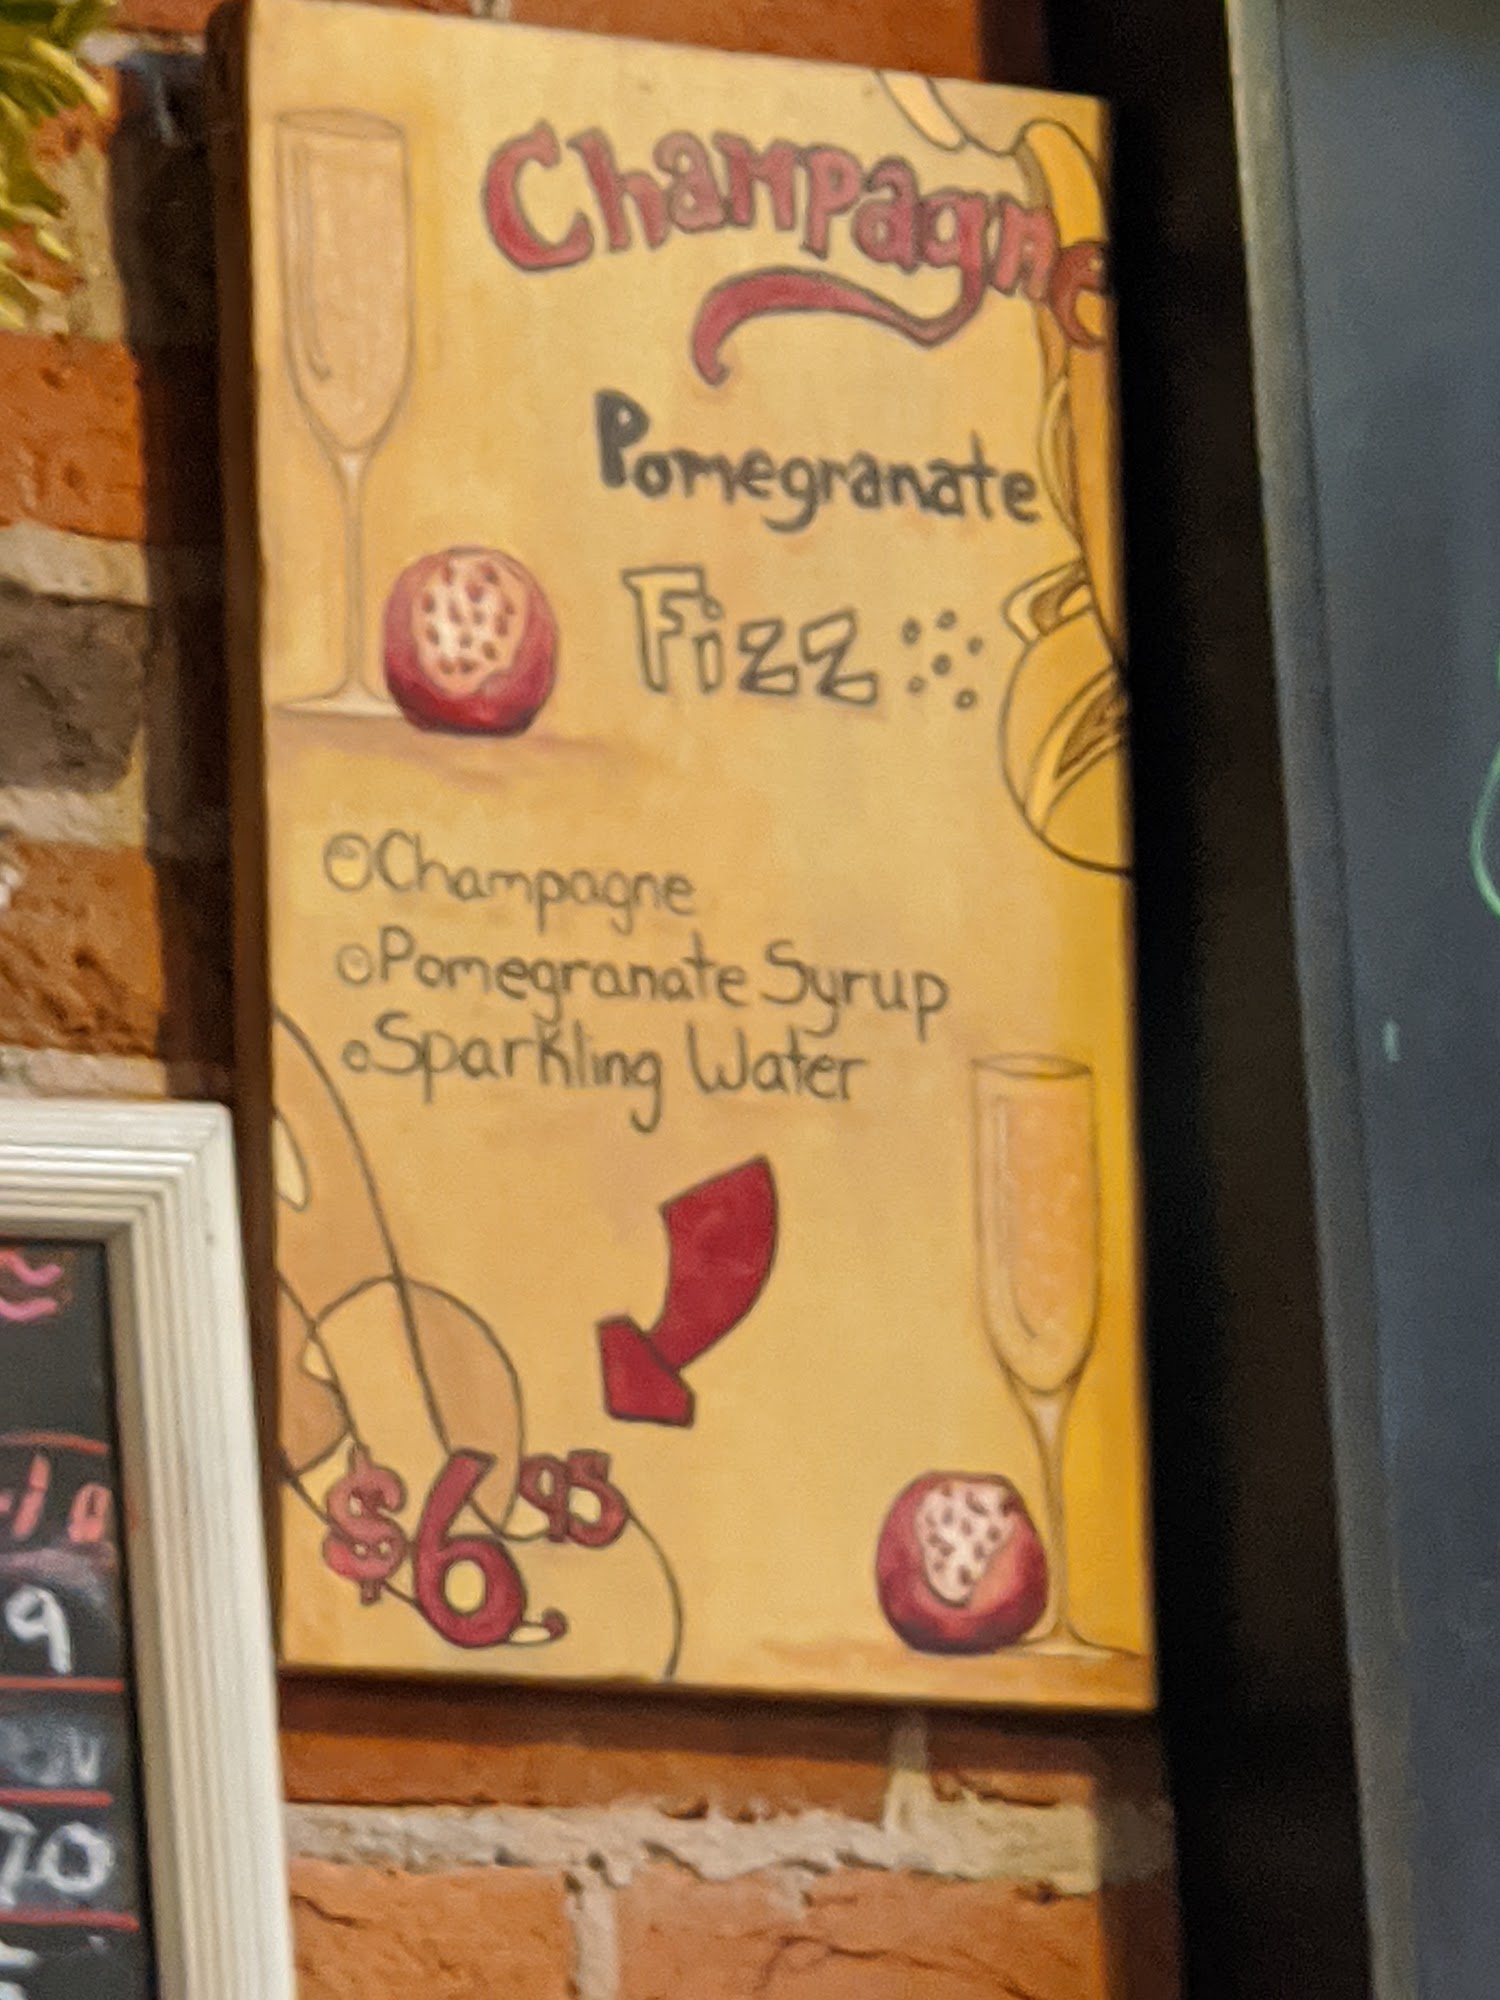 Champagne
Pomegranate
Fizz
Champagne
Pomegranate Syrup
Sparkling Water
$6.95
9
70